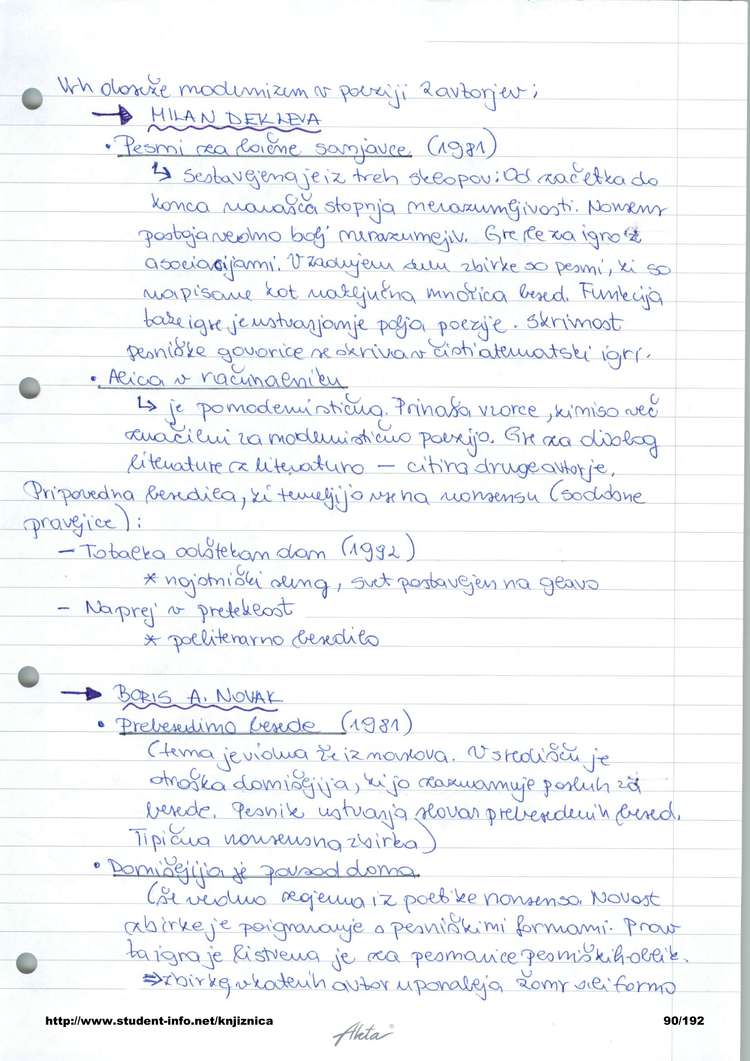 Vrh doseže modernizem v poeziji 2 avtorjev;
→ MILAN DEKLEVA
• Pesmi za lačne sanjavce (1981)
↳ Sestavljena je iz treh sklopov: Od začetka do
konca narašča stopnja nerazumljivosti. Nonsens
postaja vedno bolj nerazumljiv. Gre le za igro z
asociacijami. V zadnjem delu zbirke so pesmi, ki so
napisane kot naključna množica besed. Funkcija
take igre je ustvarjanje polja poezije. Skrivnost
pesniške govorice se skriva v čisti atematski igri.
• Alica v računalniku
↳ je pomodernistična. Prinaša vzorce, ki niso več
značilni za modernistično poezijo. Gre za dialog
literature z literaturo — citira druge avtorje.
Pripovedna besedila, ki temeljijo vse na nonsensu (sodobne
pravljice):
– Totalka odštekan dan (1992)
* najstniški sleng, svet postavljen na glavo
– Naprej v preteklost
* polliterarno besedilo
→ BORIS A. NOVAK
• Prebesedimo besede (1981)
(tema je vidna že iz naslova. V središču je
otroška domišljija, ki jo zaznamuje posluh za
besede. Pesnik ustvarja slovar prebesedenih besed.
Tipična nonsensna zbirka)
• Domišljija je povsod doma
(še vedno izgleda iz poetike nonsensa. Novost
zbirke je poigravanje s pesniškimi formami. Prav
ta igra je bistvena je za pesmarice pesniških oblik.
⇒ zbirke, v katerih avtor uporablja žanr ali formo
http://www.student-info.net/knjiznica
90/192
Akta